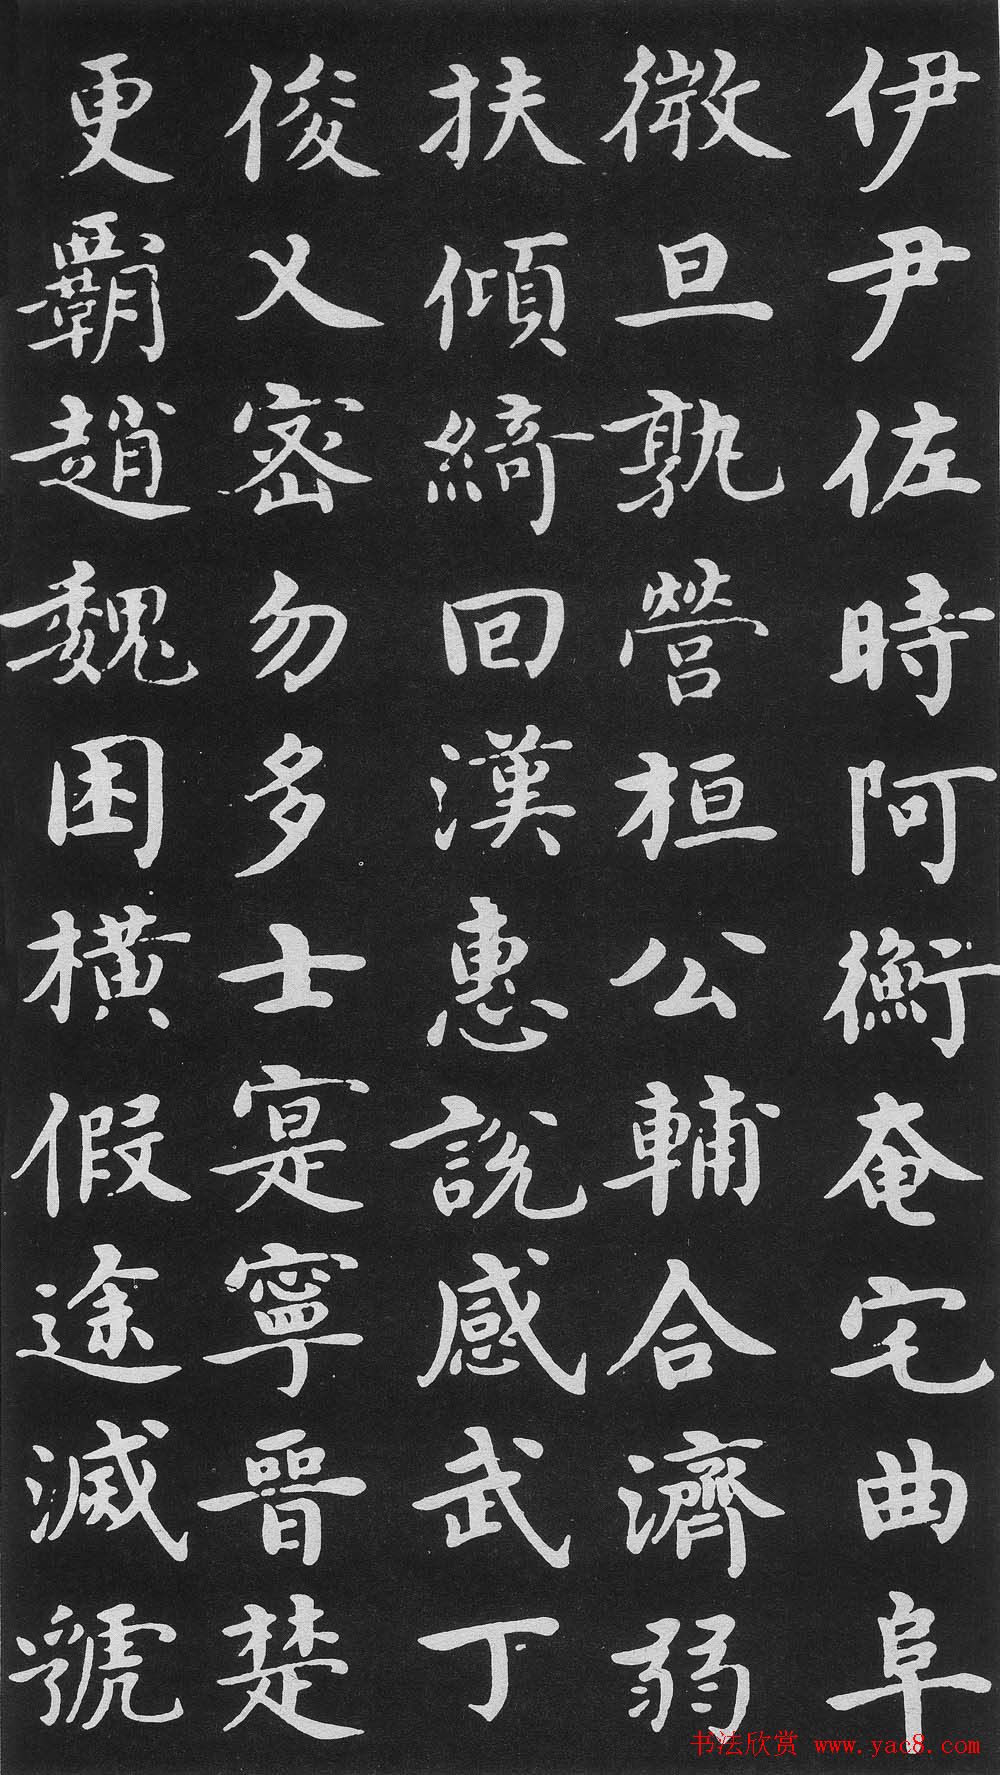 伊尹佐時阿衡奄宅曲阜
微旦孰營桓公輔合濟弱
扶傾綺回漢惠說感武丁
俊乂密勿多士寔寧晉楚
更霸趙魏困橫假途滅虢
书法欣赏 www.yac8.com